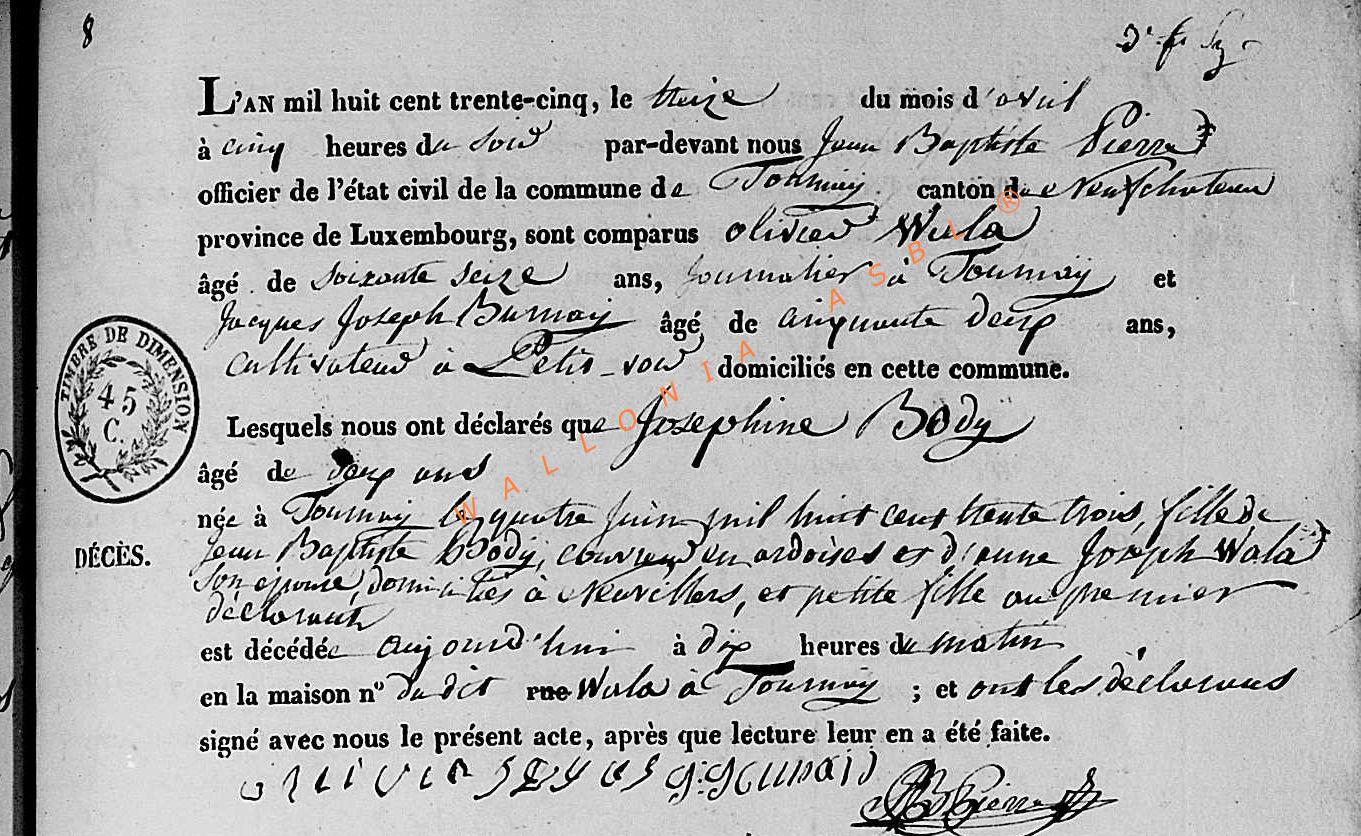 8
L'AN mil huit cent trente-cinq, le treize du mois d'avril
à cinq heures du soir par-devant nous Jean Baptiste Pierret
officier de l'état civil de la commune de Tournay canton de Neufchateau
province de Luxembourg, sont comparus olivier Wala
âgé de soixante seize ans, journalier à Tournay et
Jacques Joseph Burnay âgé de cinquante deux ans,
cultivateur à Petit-voir domiciliés en cette commune.
Lesquels nous ont déclarés que Josephine Body
âgé de deux ans
née à Tournay le quatre juin mil huit cent trente trois, fille de
Jean Baptiste Body, couvreur en ardoises et d'anne Joseph Wala
son epouse, domiciliés à Neuvillers, et petite fille au premier
déclarant
est décédée aujourd'hui à dix heures du matin
en la maison n° du dit rue Wala à Tournay ; et ont les déclarans
signé avec nous le présent acte, après que lecture leur en a été faite.
DÉCÈS.
TIMBRE DE DIMENSION
45
C.
WALLONIA ASBL ®